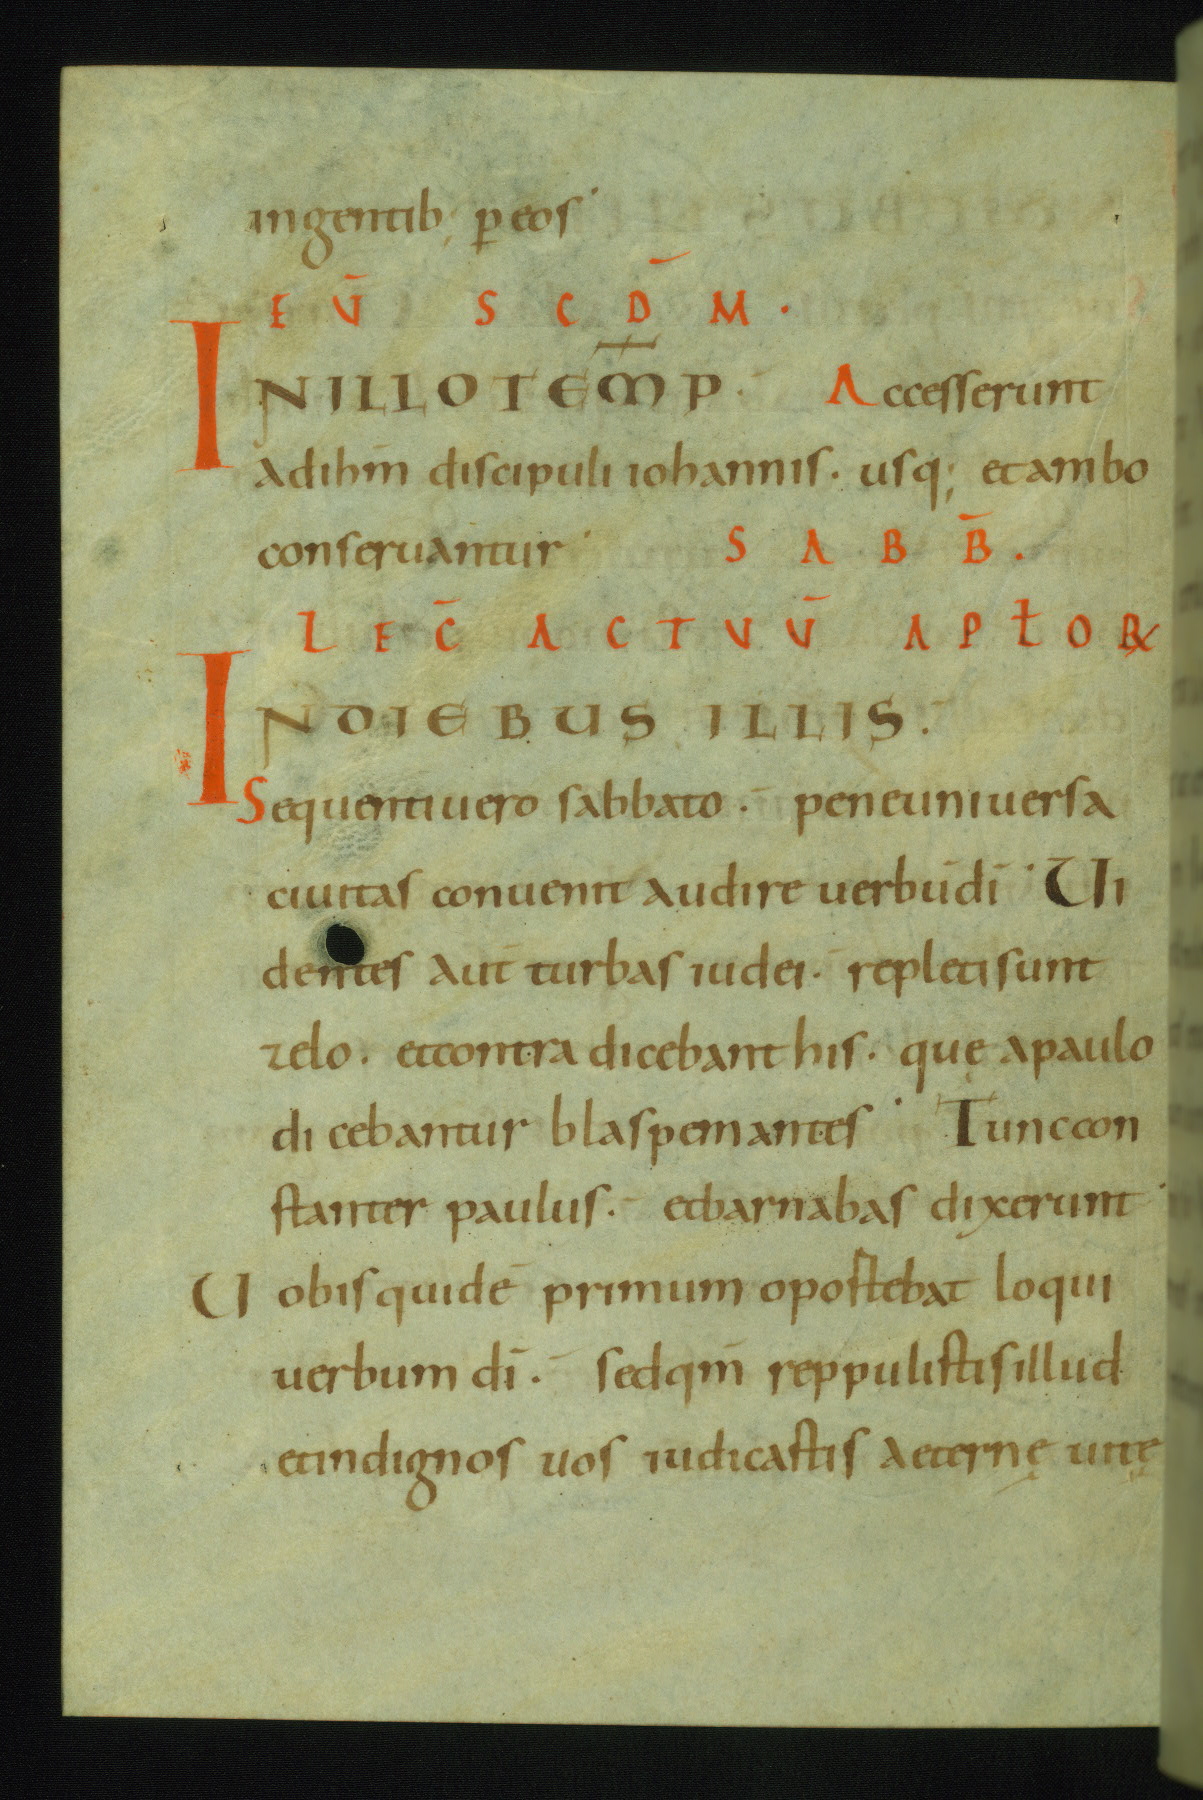 ingentib; ꝑ eos
EV̄ SCD̄M.
INILLOTEM̄P. Accesserunt
adihm̄ discipuli iohannis. usq; etambo
conseruantur SABB̄.
LEC̄ ACTVV̄ APŁOꝜ
INDIEBUS ILLIS.
Sequentiuero sabbato. peneuniuersa
ciuitas conuenit audire uerbūdī Ui
dentes aut̄ turbas iudei. repletisunt
zelo. etcontra dicebant his. quę apaulo
dicebantur blaspemantes Tunccon
stanter paulus. etbarnabas dixerunt
Uobisquidē primum opostebat loqui
uerbum dī. sedqm̄ reppulistisillud
etindignos uos iudicastis aeternę uitę